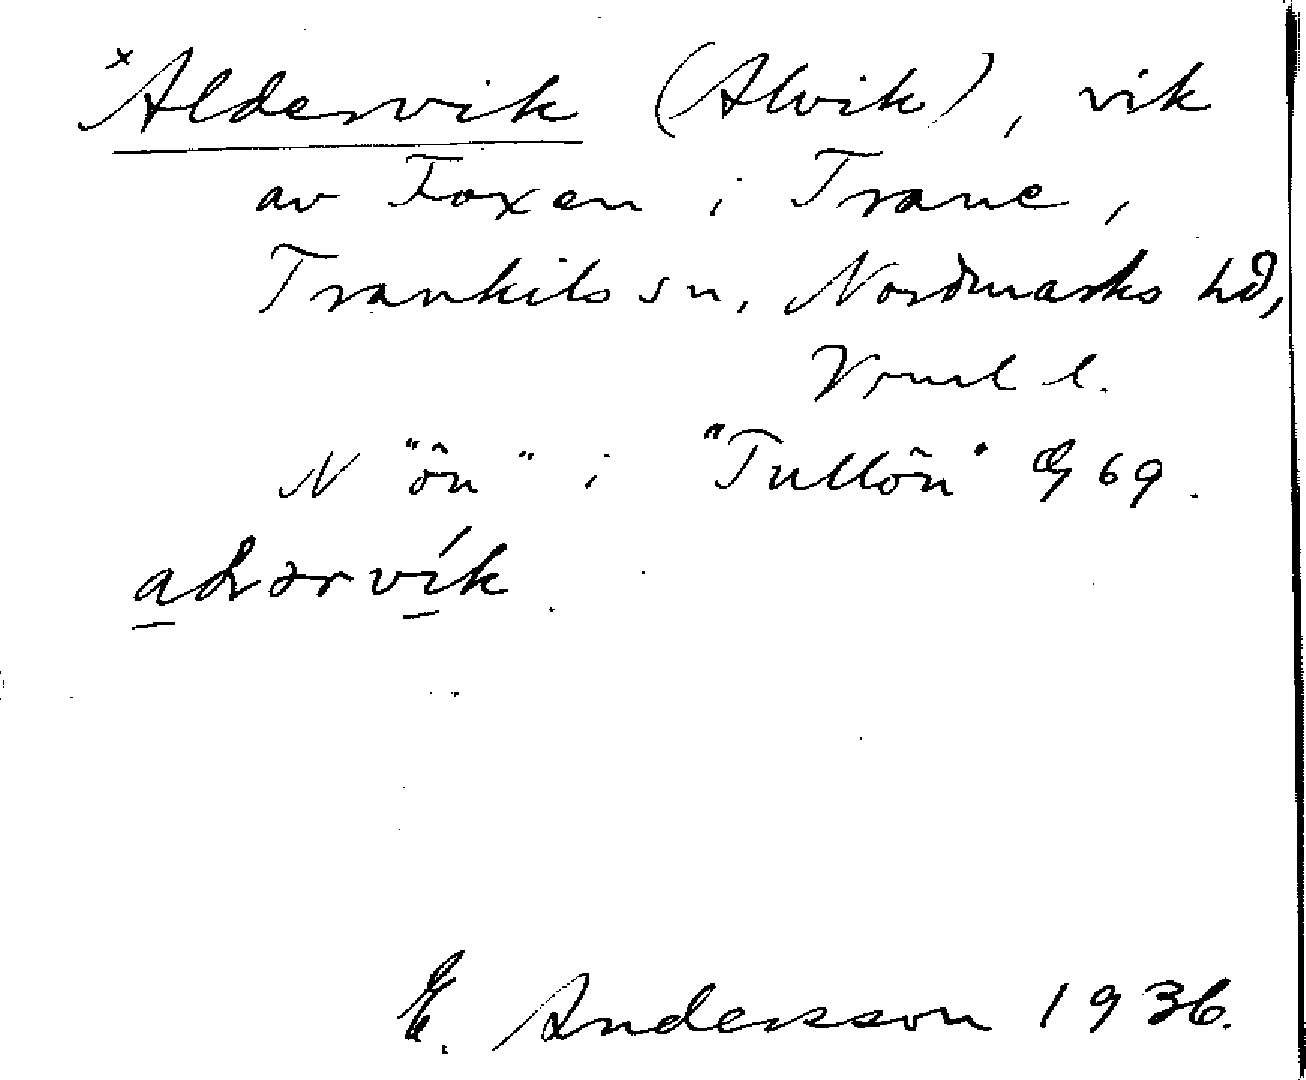 *Aldervik (Alvik), vik
av Foxen i Trane,
Trankils sn, Nordmarks hd,
Vrml l.
N "ön" i "Tullön" G 69.
aldərvík.
E. Andersson 1936.